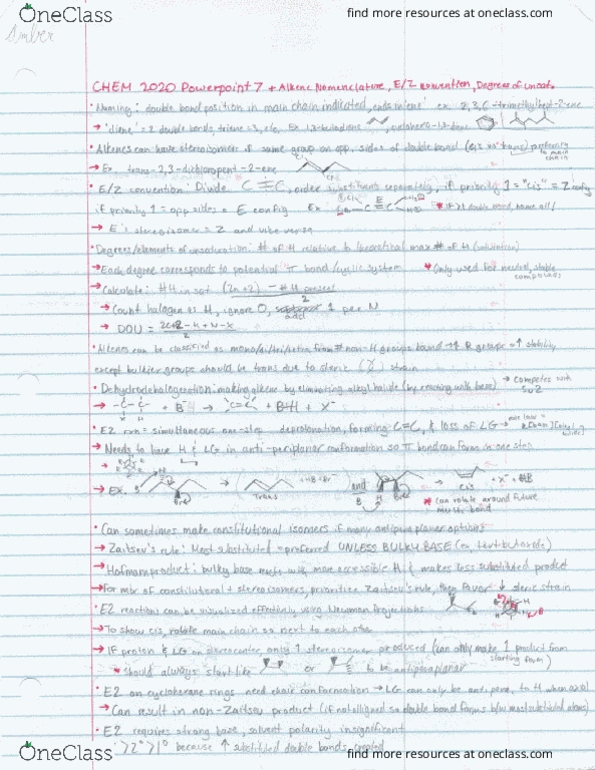 OneClass
find more resources at oneclass.com
Amber
CHEM 2020 Powerpoint 7 + Alkene Nomenclature, E/Z convention, Degrees of unsat.
• Naming: double bond position in main chain indicated, ends in 'ene' ex. 2,3,6-trimethylhept-2-ene
→ 'diene' = 2 double bonds, triene = 3, etc. Ex. 1,3-butadiene, cyclohexa-1,3-diene
• Alkenes can have stereoisomers if same group on opp. sides of double bond (cis vs trans)
→ Ex. trans-2,3-dichloropent-2-ene
• E/Z convention: Divide C=C, order substituents separately, if priority 1 = "cis" = Z config
if priority 1 = opp sides = E config Ex. * if >1 double bond, name all!
→ E's stereoisomer = Z and vice versa
• Degrees/elements of unsaturation: # of H relative to theoretical max # of H (saturation)
→ Each degree corresponds to potential π bond/cyclic system * Only used for neutral, stable
→ Calculate: #H in sat. (2n+2) - #H present
2
→ Count halogen as H, ignore O, add 1 per N
→ DOU = 2C+2-H+N-X
2
• Alkenes can be classified as mono/di/tri/tetra from # non-H groups bound → ↑ R groups = ↑ stability
except bulkier groups should be trans due to steric strain
• Dehydrohalogenation: making alkene by eliminating alkyl halide (by reacting with base) → competes with
SN2
→ -C-C- + B → C=C + B-H + X⁻
• E2 rxn = simultaneous one-step deprotonation, forming C=C, & loss of LG
→ Needs to have H & LG in anti-periplanar conformation so π bond can form in one step
→ Ex. trans and cis + X⁻ + HB
* can rotate around future
bond
• Can sometimes make constitutional isomers if many antiperiplanar options
→ Zaitsev's rule: Most substituted = preferred UNLESS BULKY BASE (ex. tert-butoxide)
→ Hofmann product: bulky base reacts with more accessible H & makes less substituted product
→ For mix of constitutional + stereoisomers, prioritize Zaitsev's rule, then favor ↓ steric strain
• E2 reactions can be visualized effectively using Newman Projections
→ To show cis, rotate main chain so next to each other
→ IF proton & LG on stereocenter, only 1 stereoisomer produced (can only make 1 product from
starting form)
* Should always start like or to be antiperiplanar
• E2 on cyclohexane rings need chair conformation → LG can only be anti peri. to H when axial
→ Can result in non-Zaitsev product (if not aligned so double bond forms b/w most substituted atoms)
• E2 requires strong base, solvent polarity insignificant
3°>2°>1° because ↑ substituted double bonds created
OneClass
find more resources at oneclass.com